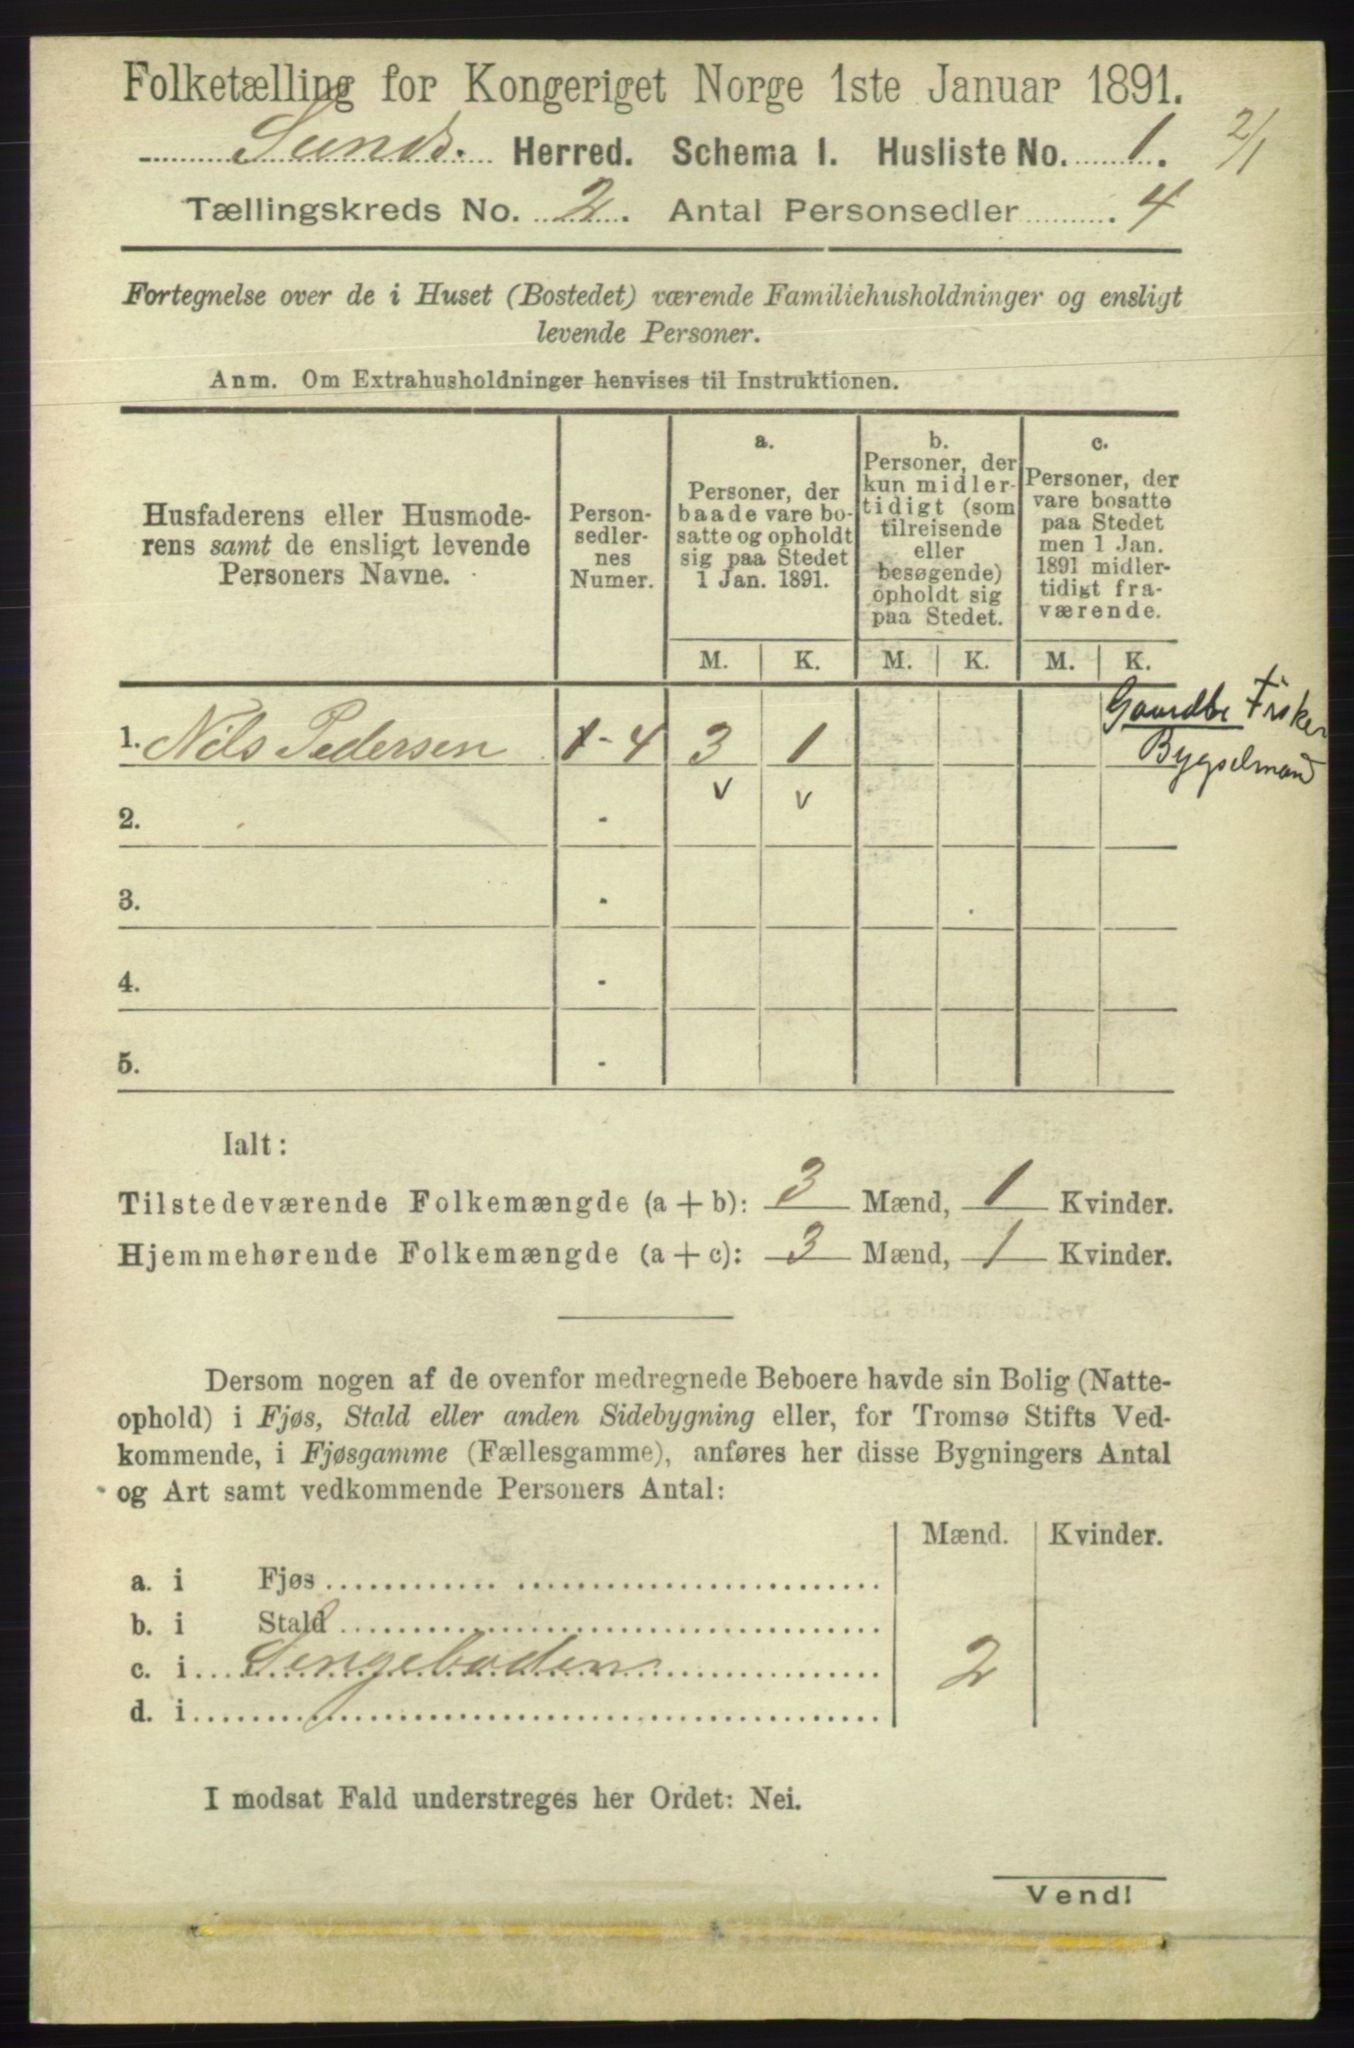 Folketælling for Kongeriget Norge 1ste Januar 1891.
Sunds. Herred. Schema I. Husliste No. 1. 2/1
Tællingskreds No. 2. Antal Personsedler . 4
Fortegnelse over de i Huset (Bostedet) værende Familiehusholdninger og ensligt
levende Personer.
Anm. Om Extrahusholdninger henvises til Instruktionen.
Husfaderens eller Husmode-
rens samt de ensligt levende
Personers Navne.
Person-
sedler-
nes
Numer.
a.
Personer, der
baade vare bo-
satte og opholdt
sig paa Stedet
1 Jan. 1891.
b.
Personer, der
kun midler-
tidigt (som
tilreisende
eller
besøgende)
opholdt sig
paa Stedet.
c.
Personer, der
vare bosatte
paa Stedet
men 1 Jan.
1891 midler-
tidigt fra-
værende.
M. K. M. K. M. K.
1. Nils Pedersen 1 - 4 3 1
Gaardbr Fisker
Bygselmand
v v
2. -
3. -
4. -
5. -
Ialt:
Tilstedeværende Folkemængde (a + b): 3 Mænd, 1 Kvinder.
Hjemmehørende Folkemængde (a + c): 3 Mænd, 1 Kvinder.
Dersom nogen af de ovenfor medregnede Beboere havde sin Bolig (Natte-
ophold) i Fjøs, Stald eller anden Sidebygning eller, for Tromsø Stifts Ved-
kommende, i Fjøsgamme (Fællesgamme), anføres her disse Bygningers Antal
og Art samt vedkommende Personers Antal:
Mænd. Kvinder.
a. i Fjøs
b. i Stald
c. i Sengeboden 2
d. i
I modsat Fald understreges her Ordet: Nei.
Vend!